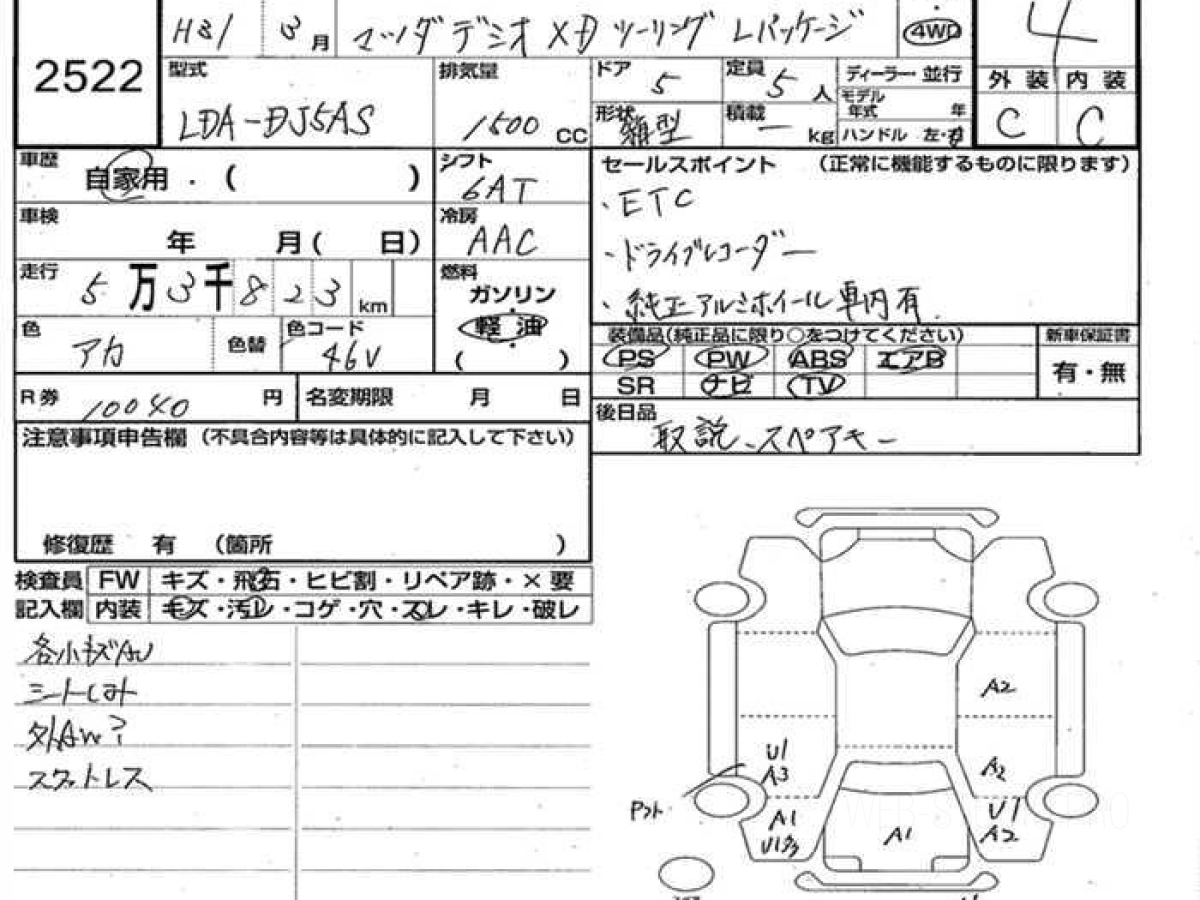 H31 3月 マツダデミオ XD ツーリング Lパッケージ 4WD 4
2522
型式 LDA-DJ5AS 排気量 1500 cc
ドア 5 定員 5 人 ディーラー・並行
形状 箱型 積載 ー kg モデル年式 年
ハンドル 左・右
外装 内装
C C
車歴 自家用・( )
シフト 6AT
セールスポイント (正常に機能するものに限ります)
・ETC
・ドライブレコーダー
・純正アルミホイール車内有
車検 年 月( 日)
冷房 AAC
走行 5万3千823 km
燃料 ガソリン・軽油・( )
色 アカ 色替 色コード 46V
装備品(純正品に限り○をつけてください) 新車保証書
PS PW ABS エアB
SR ナビ TV 有・無
R券 10040 円 名変更期限 月 日
後日品 取説、スペアキー
注意事項申告欄 (不具合内容等は具体的に記入して下さい)
修復歴 有 (箇所 )
検査員 FW キズ・飛石・ヒビ割・リペア跡・×要
記入欄 内装 キズ・汚レ・コゲ・穴・スレ・キレ・破レ
各小キズAU
シートしみ
外AW?
スタットレス
A2
U1
A3
A2
A1
U1
A2
A1